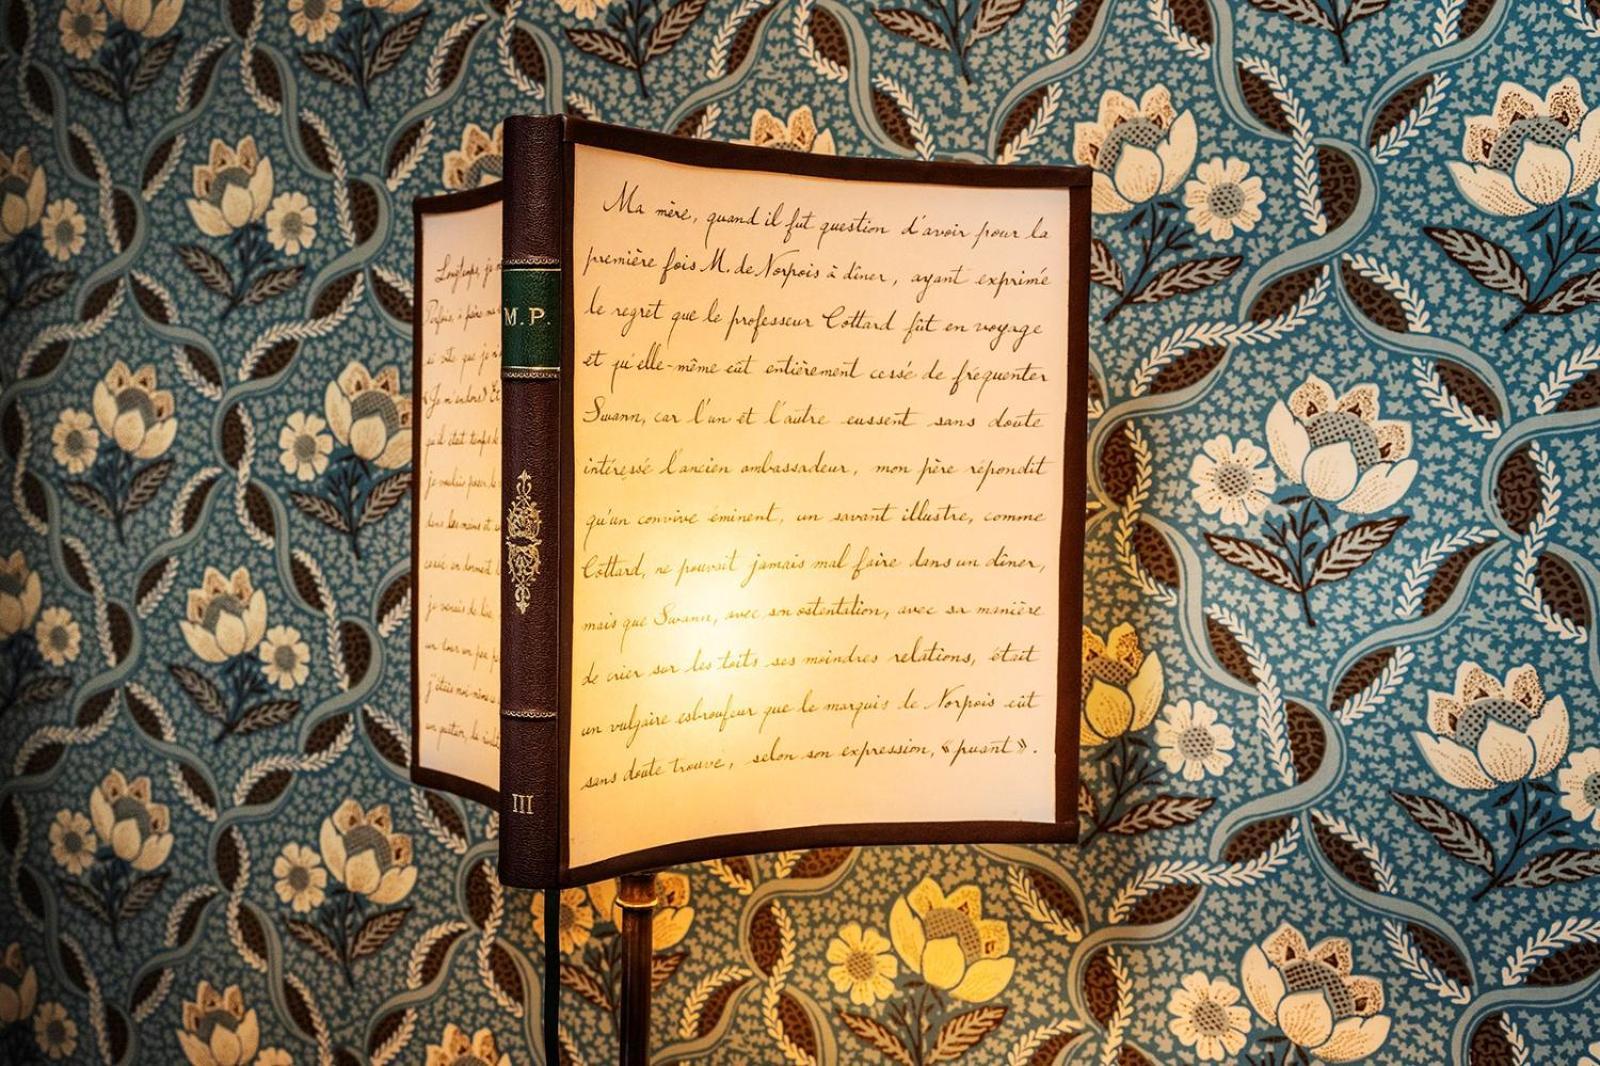 Longtemps, je m
Parfois, à peine ma
si vite que je n
«Je m'endors» Et
qu'il était temps de
je voulais poser le
dans les mains et
cessé en dormant
je venais de lire,
un tour un peu p
j'étais moi-même
un quatuor, la rivalité
M.P.
III
Ma mère, quand il fut question d'avoir pour la
première fois M. de Norpois à dîner, ayant exprimé
le regret que le professeur Cottard fût en voyage
et qu'elle-même eût entièrement cessé de fréquenter
Swann, car l'un et l'autre eussent sans doute
intéressé l'ancien ambassadeur, mon père répondit
qu'un convive éminent, un savant illustre, comme
Cottard, ne pouvait jamais mal faire dans un dîner,
mais que Swann, avec son ostentation, avec sa manière
de crier sur les toits ses moindres relations, était
un vulgaire esbroufeur que le marquis de Norpois eût
sans doute trouvé, selon son expression, «puant».